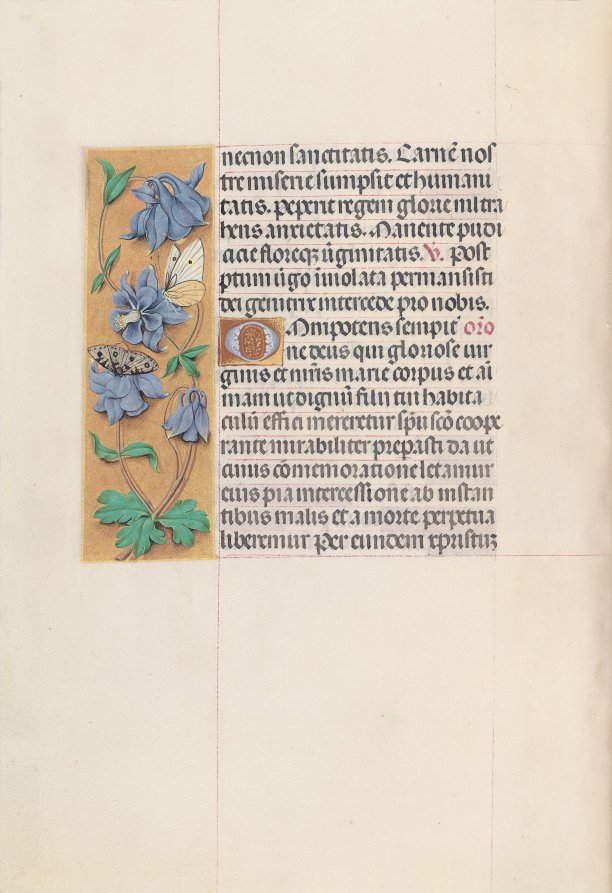 necnon sanctitatis. Carnē nos
tre miserie sumpsit et humani
tatis. peperit regem glorie nil tra
hens anxietatis. Manente pudi
cicie floreq; ūginitatis. V. Post
ptum ūgo inuiolata permansisti
dei genitrix intercede pro nobis.
Omnipotens sempit oro
ne deus qui gloriose uir
ginis et mr̄is marie corpus et ai
mam ut dignū filii tui habita
culū effici mereretur sp̄u scō coope
rante mirabiliter prepasti da ut
cuius cōmemoratione letamur
eius pia intercessione ab instan
tibus malis et a morte perpetua
liberemur Per eundem xpristuz